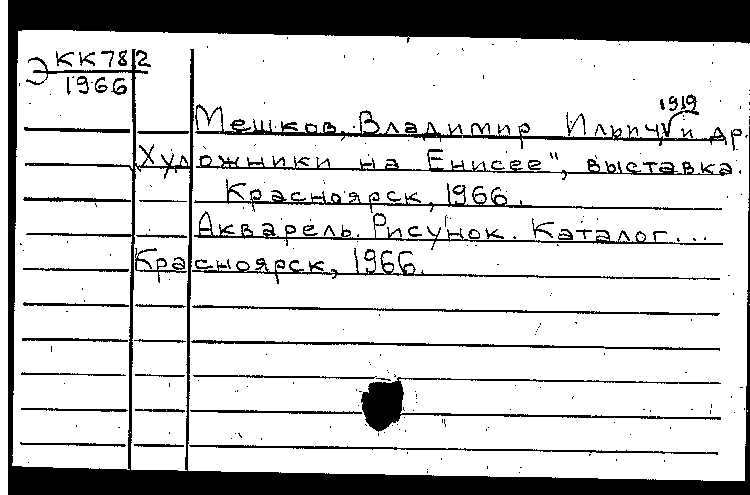 Э КК782
1966
1919
Мешков, Владимир Ильич и др.
Художники на Енисее", выставка.
Красноярск, 1966.
Акварель. Рисунок. Каталог...
Красноярск, 1966.